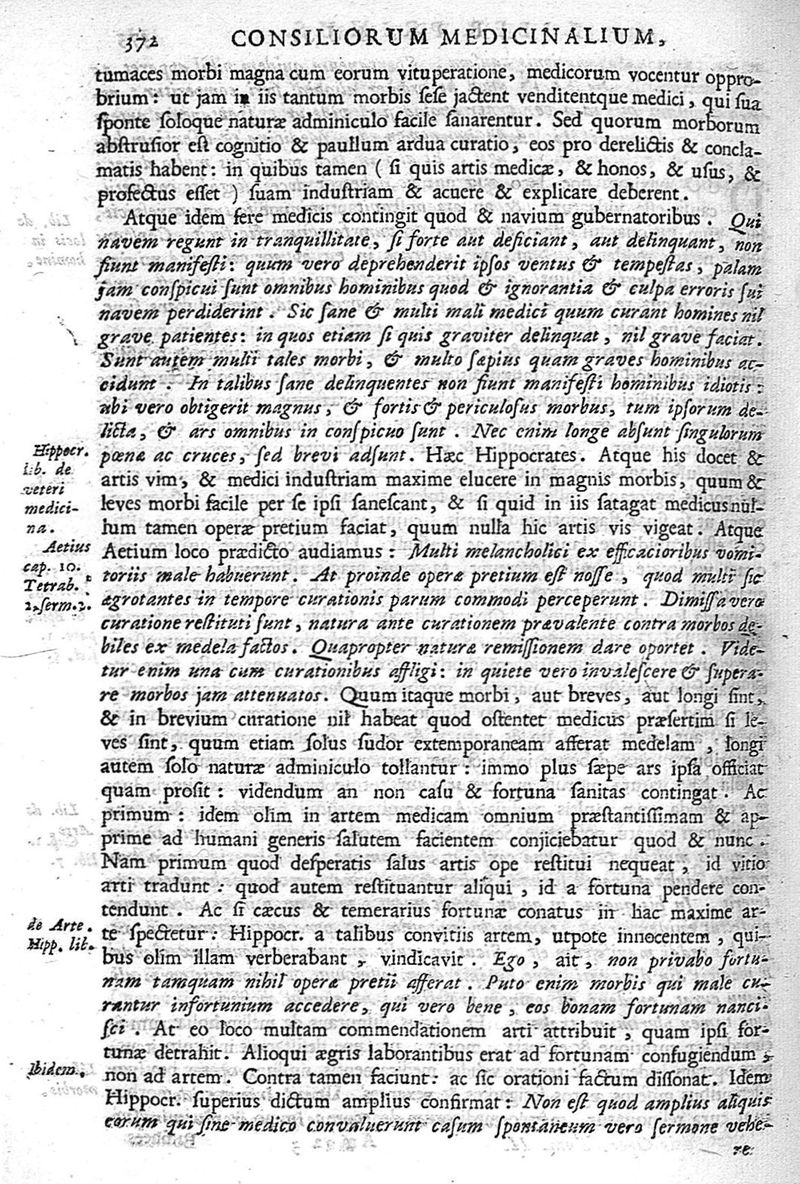 372 CONSILIORUM MEDICINALIUM,
tumaces morbi magna cum eorum vituperatione, medicorum vocentur oppro-
brium: ut jam in iis tantum morbis ſeſe jactent venditentque medici, qui ſua
ſponte ſoloque naturæ adminiculo facile ſanarentur. Sed quorum morborum
abſtruſior eſt cognitio & paullum ardua curatio, eos pro derelictis & concla-
matis habent: in quibus tamen ( ſi quis artis medicæ, & honos, & uſus, &
profectus eſſet ) ſuam induſtriam & acuere & explicare deberent.
Atque idem fere medicis contingit quod & navium gubernatoribus. Qui
navem regunt in tranquillitate, ſi forte aut deficiant, aut delinquant, non
fiunt manifeſti: quum vero deprehenderit ipſos ventus & tempeſtas, palam
jam conſpicui ſunt omnibus hominibus quod & ignorantia & culpa erroris ſui
navem perdiderint. Sic ſane & multi mali medici quum curant homines nil
grave patientes: in quos etiam ſi quis graviter delinquat, nil grave faciat.
Sunt autem multi tales morbi, & multo ſæpius quam graves hominibus ac-
cidunt. In talibus ſane delinquentes non fiunt manifeſti hominibus idiotis:
ubi vero obtigerit magnus, & fortis & periculoſus morbus, tum ipſorum de-
licta, & ars omnibus in conſpicuo ſunt. Nec enim longe abſunt ſingulorum
Hippocr. lib. de veteri medici- na.
pœnæ ac cruces, ſed brevi adſunt. Hæc Hippocrates. Atque his docet &
artis vim, & medici induſtriam maxime elucere in magnis morbis, quum &
leves morbi facile per ſe ipſi ſaneſcant, & ſi quid in iis ſatagat medicus nul-
lum tamen operæ pretium faciat, quum nulla hic artis vis vigeat. Atque
Aetius cap. 10. Tetrab. 2. ſerm. 2.
Aetium loco prædicto audiamus: Multi melancholici ex efficacioribus vomi-
toriis male habuerunt. At proinde operæ pretium eſt noſſe, quod multi ſic
ægrotantes in tempore curationis parum commodi perceperunt. Dimiſſa vero
curatione reſtituti ſunt, natura ante curationem prævalente contra morbos de-
biles ex medela factos. Quapropter naturæ remiſſionem dare oportet. Vide-
tur enim una cum curationibus affligi: in quiete vero invaleſcere & ſupera-
re morbos jam attenuatos. Quum itaque morbi, aut breves, aut longi ſint,
& in brevium curatione nil habeat quod oſtentet medicus præſertim ſi le-
ves ſint, quum etiam ſolus ſudor extemporaneam afferat medelam, longi
autem ſolo naturæ adminiculo tollantur: immo plus ſæpe ars ipſa officiat
quam proſit: videndum an non caſu & fortuna ſanitas contingat. Ac
primum: idem olim in artem medicam omnium præſtantiſſimam & ap-
prime ad humani generis ſalutem facientem conjiciebatur quod & nunc.
Nam primum quod deſperatis ſalus artis ope reſtitui nequeat, id vitio
arti tradunt: quod autem reſtituantur aliqui, id a fortuna pendere con-
tendunt. Ac ſi cæcus & temerarius fortunæ conatus in hac maxime ar-
de Arte. Hipp. lib.
te ſpectetur: Hippocr. a talibus convitiis artem, utpote innocentem, qui-
bus olim illam verberabant, vindicavit. Ego, ait, non privabo fortu-
nam tamquam nihil operæ pretii afferat. Puto enim morbis qui male cu-
rantur infortunium accedere, qui vero bene, eos bonam fortunam nanci-
ſci. At eo loco multam commendationem arti attribuit, quam ipſi for-
tunæ detrahit. Alioqui ægris laborantibus erat ad fortunam confugiendum,
Ibidem.
non ad artem. Contra tamen faciunt: ac ſic orationi factum diſſonat. Idem
Hippocr. ſuperius dictum amplius confirmat: Non eſt quod amplius aliquis
eorum qui ſine medico convaluerunt caſum ſpontaneum vero ſermone vehe-
re